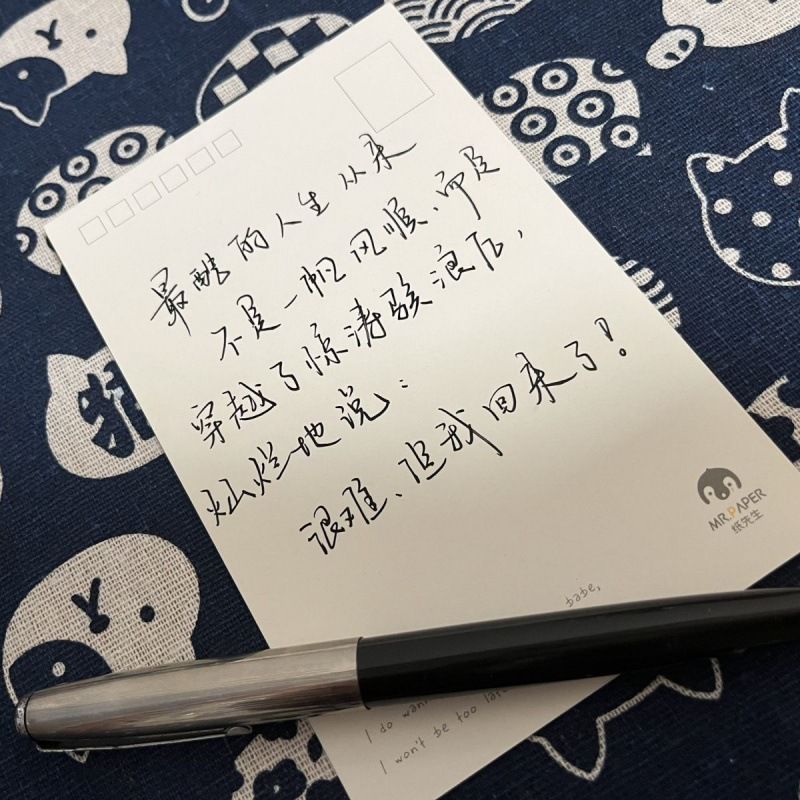 最酷的人生从来
不是一帆风顺、而是
穿越了惊涛骇浪后，
灿烂地说：
很难、但我回来了！
MR.PAPER
纸先生
babe,
I do wann
I won't be too la